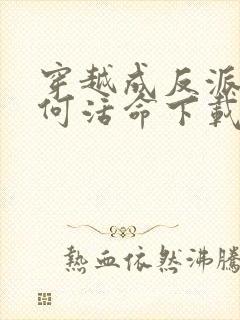 穿越成反派
何活命下載
熱血依然沸騰